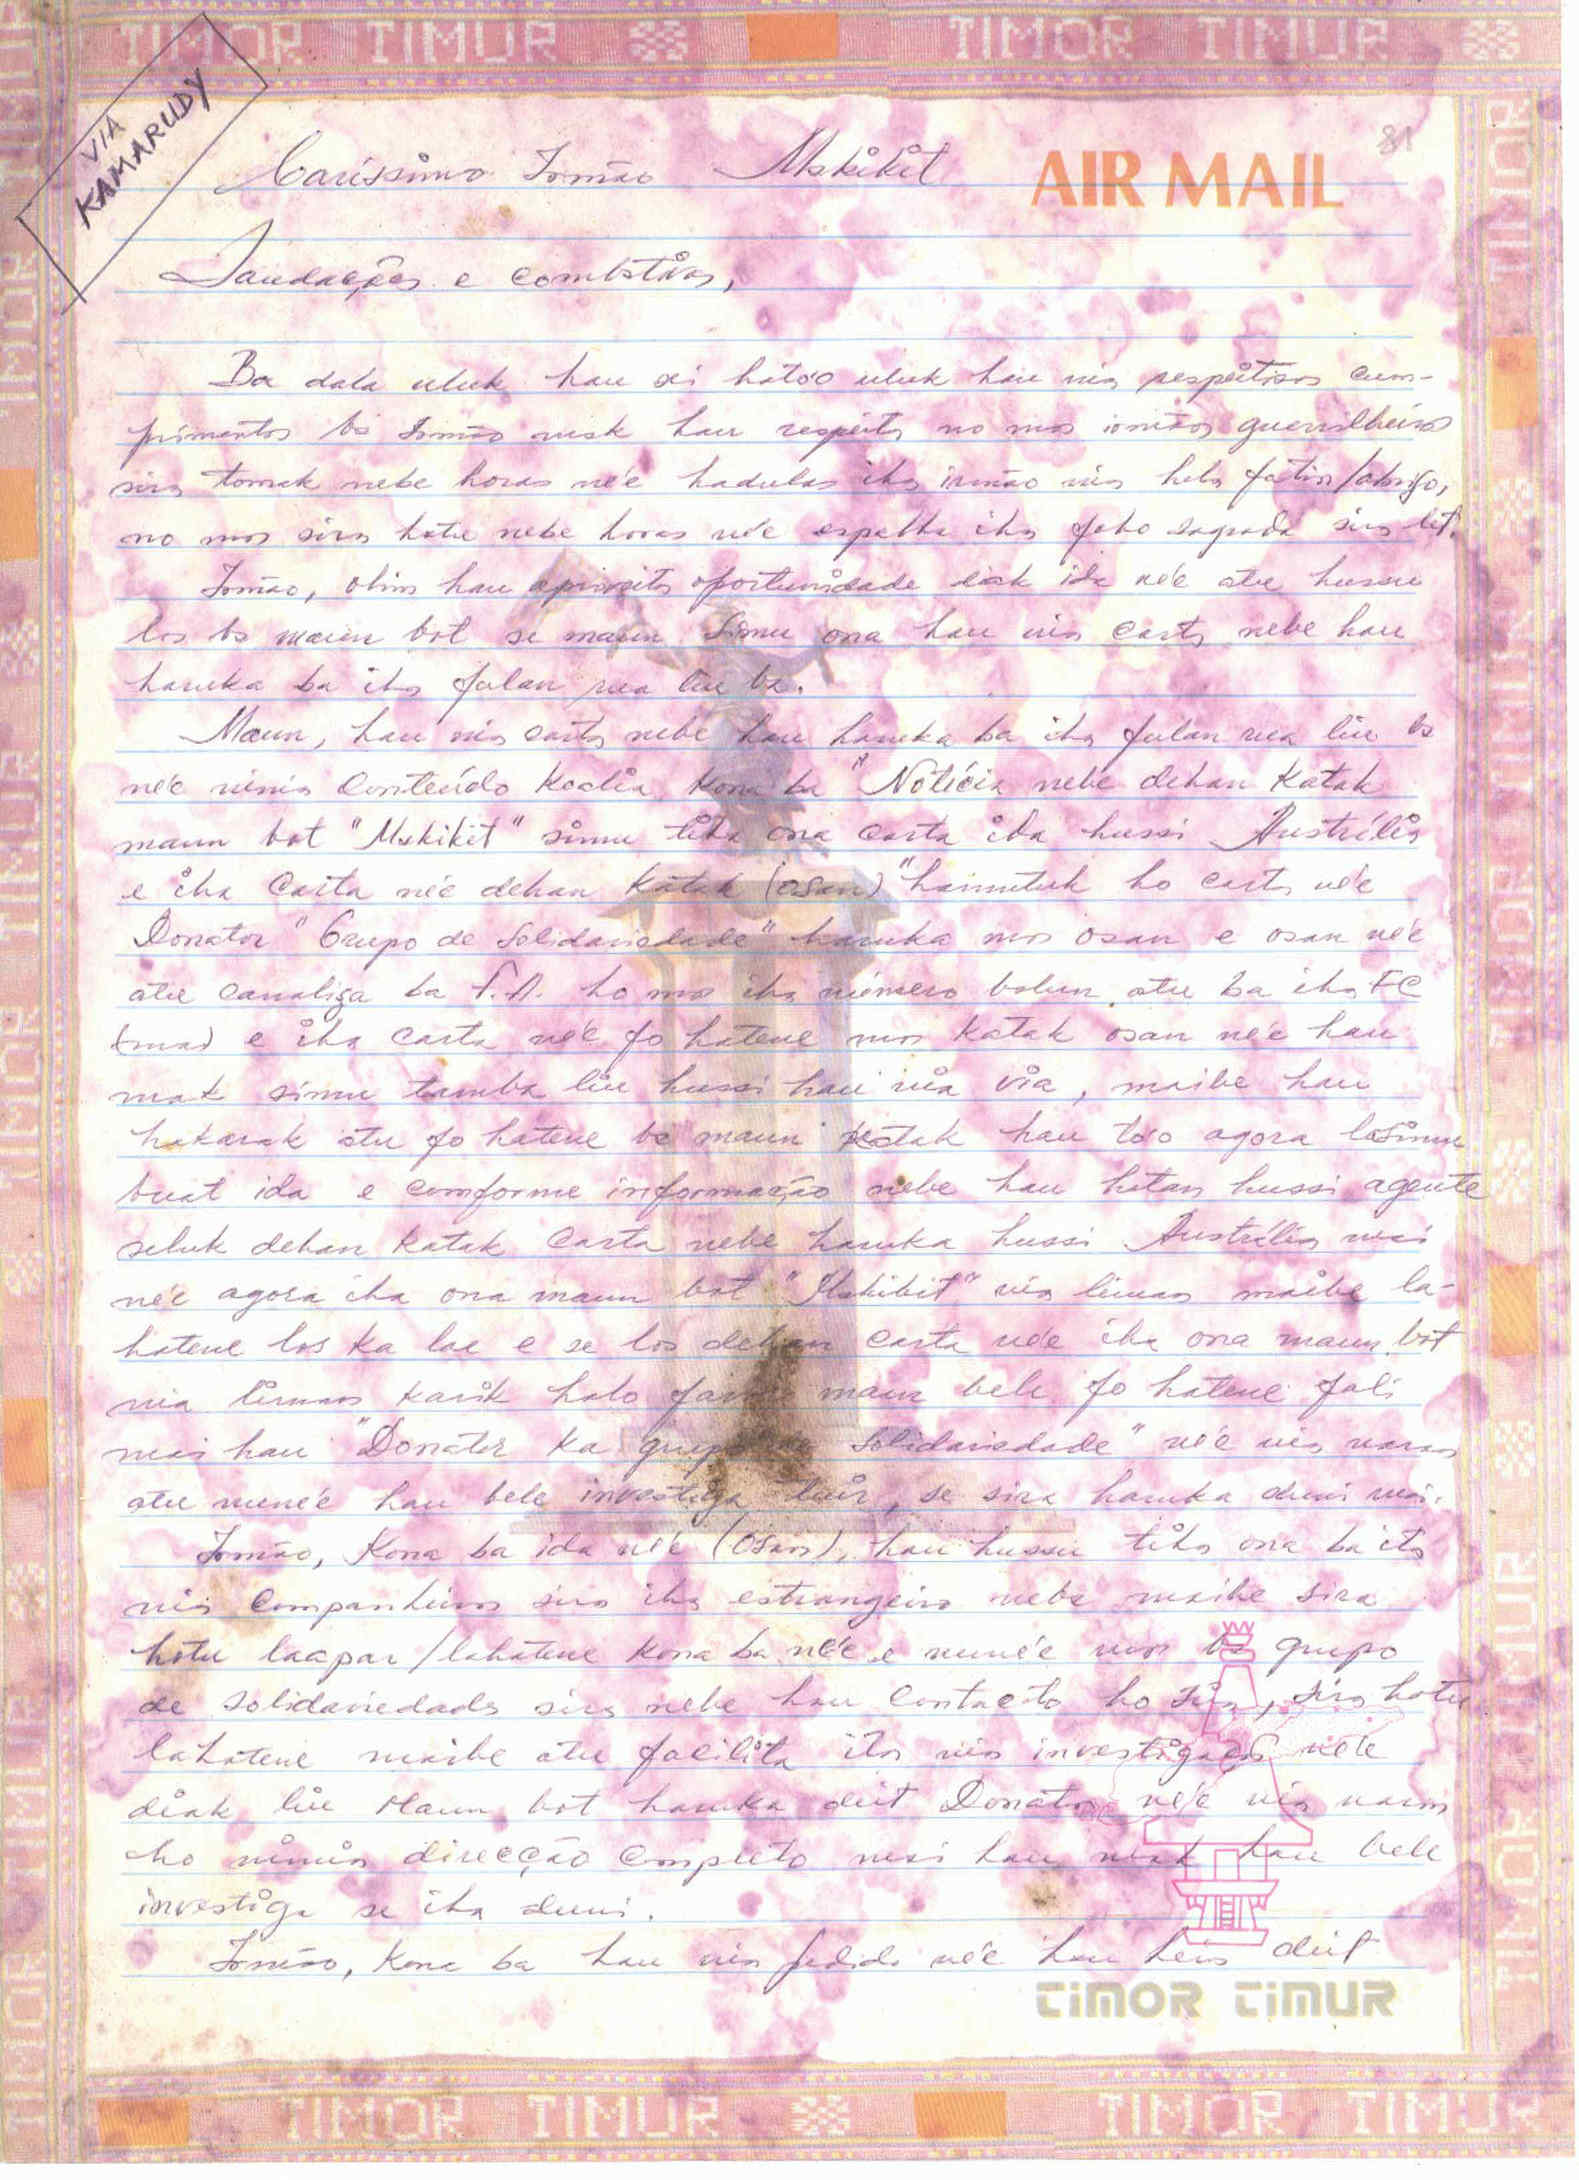 TIMOR TIMUR TIMOR TIMUR
VIA
KAMARUDY
81
Caríssimo Irmão Makikit
AIR MAIL
Saudações e combativas,
Ba dala uluk hau sei hato'o uluk hau nia respeitosos cum-
primentos ba Irmão nesk hau respeita no mos irmãos guerrilheiros
sira tomak nebe horas ne'e hadulas iha irmão nia hela fatin/abrigo,
no mos sira hotu nebe horas ne'e espalha iha foho sagrada sira let.
Irmão, ohin hau aproveita oportunidade diak ida ne'e atu hussu
los ba maun bot se maun simu ona hau nia carta nebe hau
haruka ba iha fulan rua liu ba.
Maun, hau nia carta nebe hau haruka ba iha fulan rua liu ba
ne'e ninia Conteúdo koalia kona ba "Notícia nebe dehan katak
maun bot "Makikit" simu tiha ona carta ida hussi Austrália
e iha Carta ne'e dehan katak (osan) "hamutuk ho carta ne'e
Donator "Grupo de Solidariedade" haruka mos osan e osan ne'e
atu canaliza ba ho mos iha número balun atu ba iha FC
e iha Carta ne'e fo hatene mos katak osan ne'e hau
mak simu tamba liu hussi hau nia via, maibe hau
hakarak atu fo hatene ba maun katak hau to'o agora lasimu
buat ida e comforme informação nebe hau hetan hussi agente
seluk dehan katak Carta nebe haruka hussi Austrália mai
ne'e agora iha ona maun bot "Makikit" nia liman maibe la-
hatene los ka lae e se los dehan carta ne'e iha ona maun bot
nia liman karik halo favor maun bele fo hatene fali
mai hau "Donator ka grupo de Solidariedade" ne'e nia naran
atu nune'e hau bele investiga tuir, se sira haruka duni mai.
Irmão, Kona ba ida ne'e (osan), hau hussu tiha ona ba ita
nia Companheiros sira iha estrangeiro neba maibe sira
hotu laapar/lahatene kona ba ne'e e nune'e mos ba grupo
de solidariedade sira nebe hau Contacto ho sira, sira hotu
lahatene maibe atu facilita ita nia investigação ne'e
diak liu Maun bot haruka deit Donator ne'e nia naran
ho ninia direcção Completo mai hau mak hau bele
investiga se iha duni.
Irmão, Kona ba hau nia pedido ne'e hau hein deit
TIMOR TIMUR
TIMOR TIMUR TIMOR TIMUR